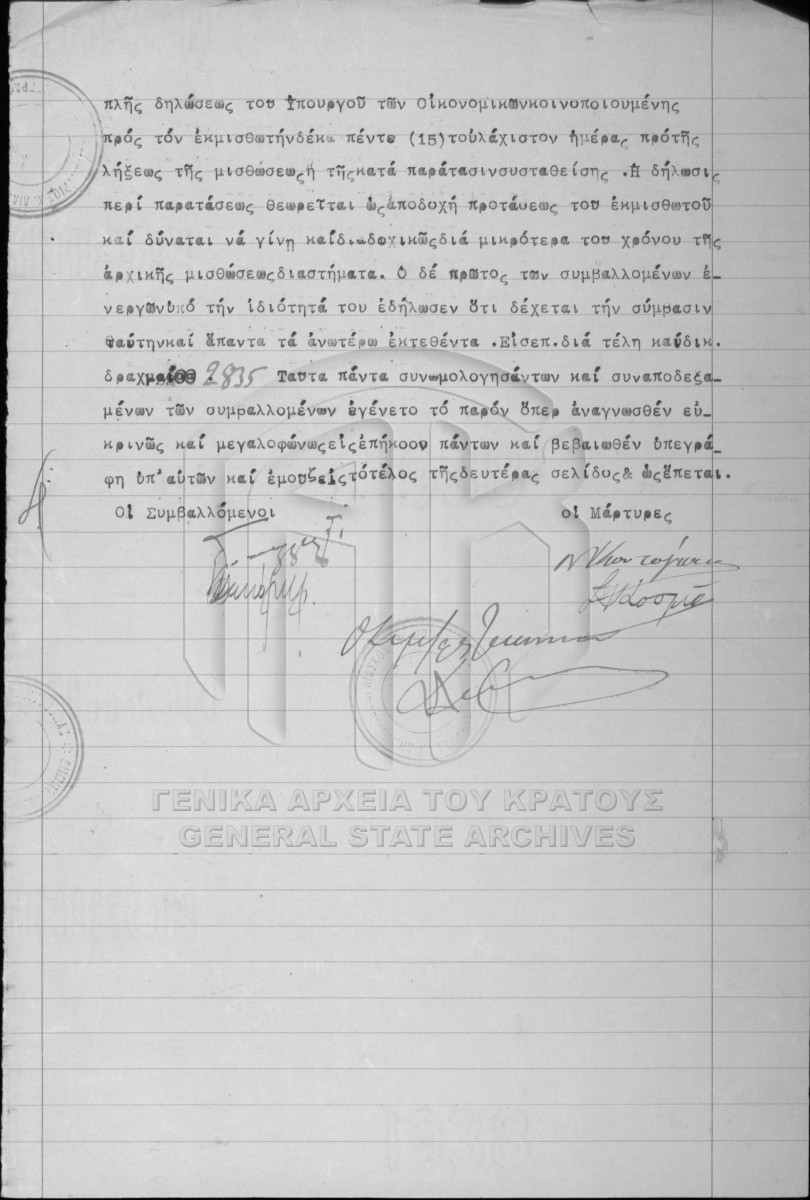 πλῆς δηλώσεως του Ὑπουργοῦ τῶν Οἰκονομικωνκοινοποιουμένης
πρός τόν ἐκμισθωτήνδέκα πέντε (15)τοὐλάχιστον ἡμέρας πρότῆς
λήξεως τῆς μισθώσεωςἤ τῆςκατά παράτασινσυσταθείσης .Ἡ δήλωσις
περί παρατάσεως θεωρεῖται ὡςἀποδοχή προτάσεως του ἐκμισθωτοῦ
καί δύναται νά γίνῃ καίδιαδοχικῶςδιά μικρότερα του χρόνου τῆς
ἀρχικῆς μισθώσεωςδιαστήματα. Ὁ δέ πρῶτος των συμβαλλομένων ἐ-
νεργῶνὑπό τήν ἰδιότητά του ἐδήλωσεν ὅτι δέχεται τήν σύμβασιν
ταύτηνκαί ἅπαντα τά ἀνωτέρω ἐκτεθέντα .Εἰσεπ.διά τέλη καίδικ.
δραχ 2835 Ταῦτα πάντα συνωμολογησάντων καί συναποδεξα-
μένων τῶν συμβαλλομένων ἐγένετο τό παρόν ὅπερ ἀναγνωσθέν εὐ-
κρινῶς καί μεγαλοφώνωςεἰςἐπήκοον πάντων καί βεβαιωθέν ὑπεγρά-
φη ὑπ'αὐτῶν καί ἐμοῦ εἰςτότέλος τῆςδευτέρας σελίδος& ὡςἕπεται.
Οἱ Συμβαλλόμενοι οἱ Μάρτυρες
ΓΕΝΙΚΑ ΑΡΧΕΙΑ ΤΟΥ ΚΡΑΤΟΥΣ
GENERAL STATE ARCHIVES